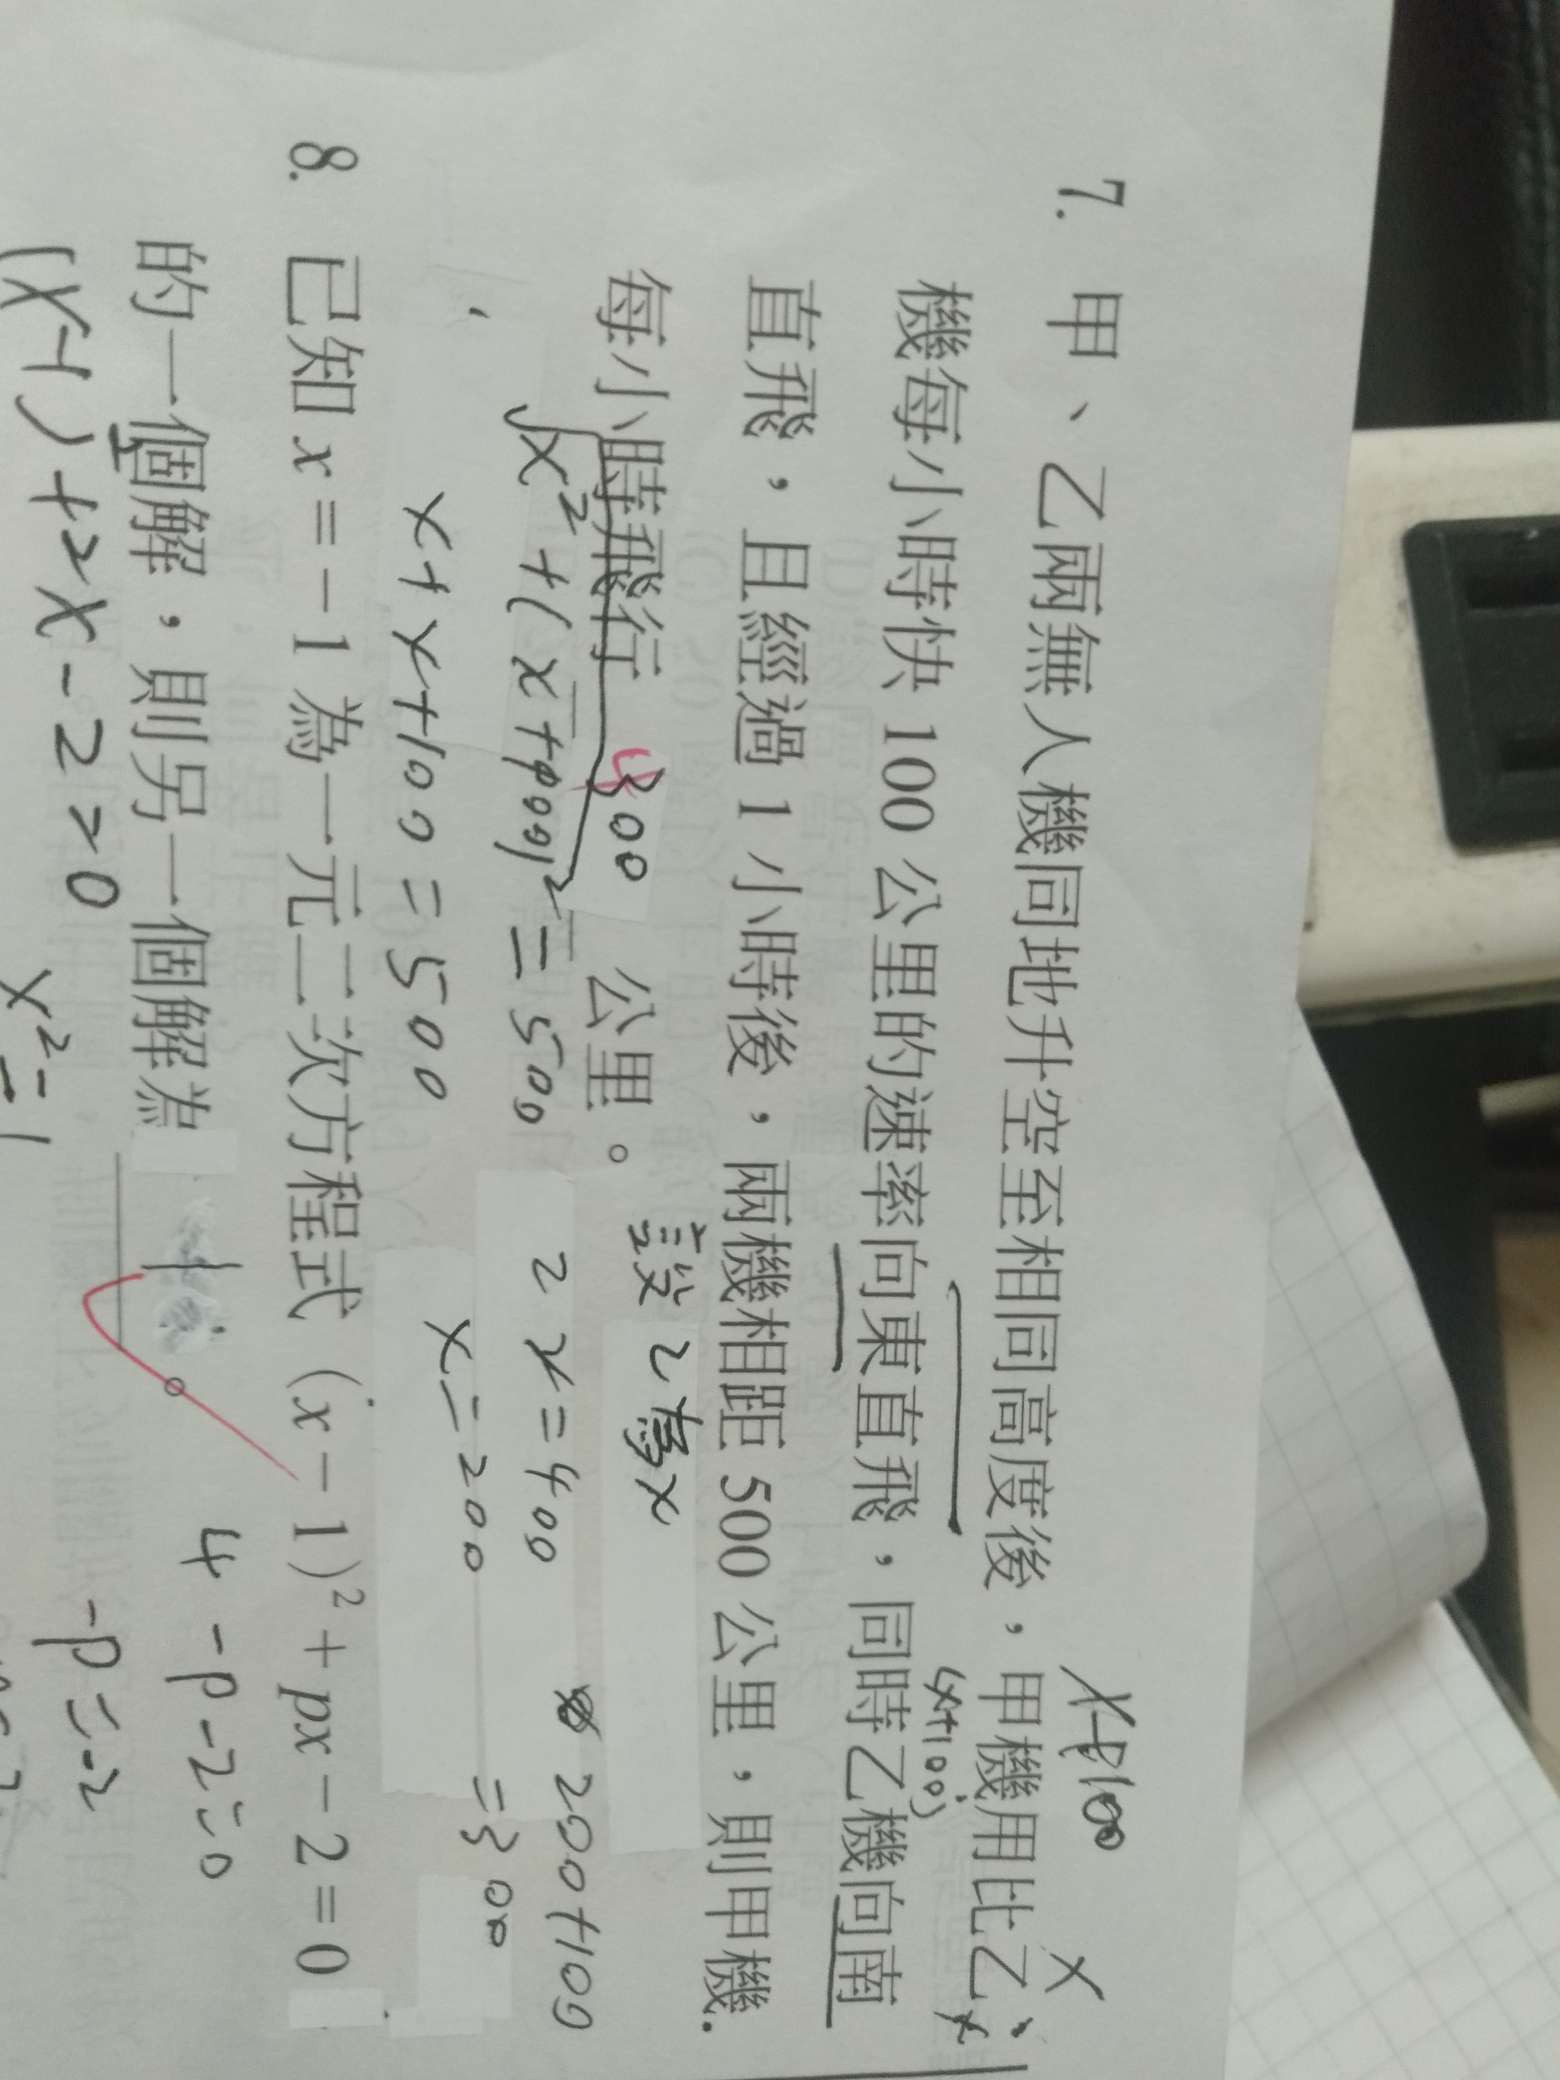 x+100 x
7. 甲、乙兩無人機同地升空至相同高度後，甲機用比乙
(x+100) x
機每小時快 100 公里的速率向東直飛，同時乙機向南
直飛，且經過 1 小時後，兩機相距 500 公里，則甲機
每小時飛行 400 公里。 設乙為x
√x²+(x+100)² = 500 2x=400 200+100
x+x+100=500 x=200 =300
8. 已知 x = -1 為一元二次方程式 (x-1)²+px-2=0
的一個解，則另一個解為 1 。 4-p-2=0
(x-1)+2x-2=0 -p=-2
x²=1